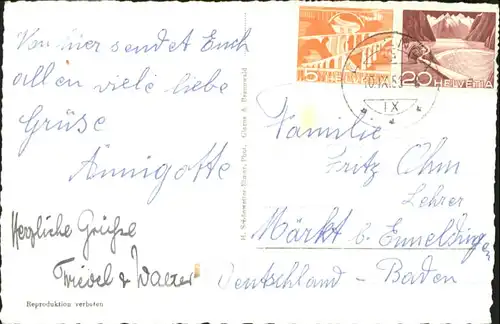 Von hier sendet Euch
allen viele liebe
Grüse
Annigotte
Herzliche Grüsse
& Walter
Reproduktion verboten
H. Schönwetter-Elmer, Phot. Glarus & Braunwald
5 HELVETIA
20 HELVETIA
10.IX.53
IX
Familie
Fritz Ohm
Lehrer
Märkt b. Enmeldingen
Deutschland - Baden